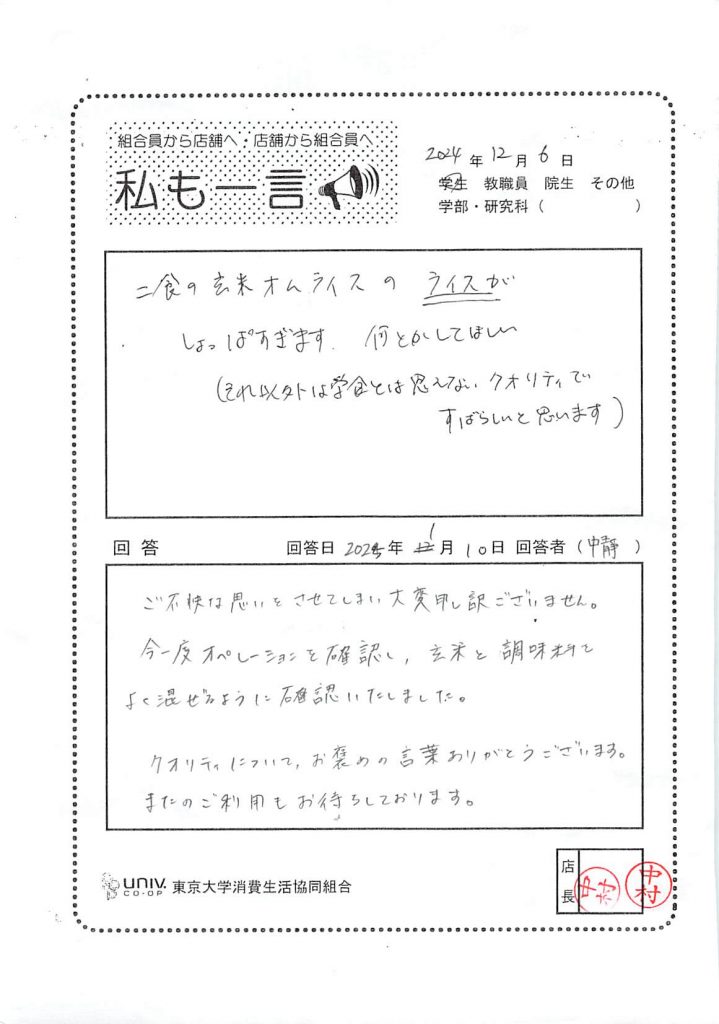 組合員から店舗へ・店舗から組合員へ
私も一言
2024年12月6日
学生 教職員 院生 その他
学部・研究科( )
二食の玄米オムライスの ライスが
しょっぱすぎます. 何とかしてほしい
(それ以外は学食とは思えない クオリティで
すばらしいと思います)
回答 回答日 2025年 1月10日 回答者(中静)
ご不快な思いをさせてしまい大変申し訳ございません。
今一度オペレーションを確認し、玄米と調味料を
よく混ぜるように確認いたしました。
クオリティについて、お褒めの言葉ありがとうございます。
またのご利用もお待ちしております。
UNIV. CO-OP 東京大学消費生活協同組合
店長
中村
中村